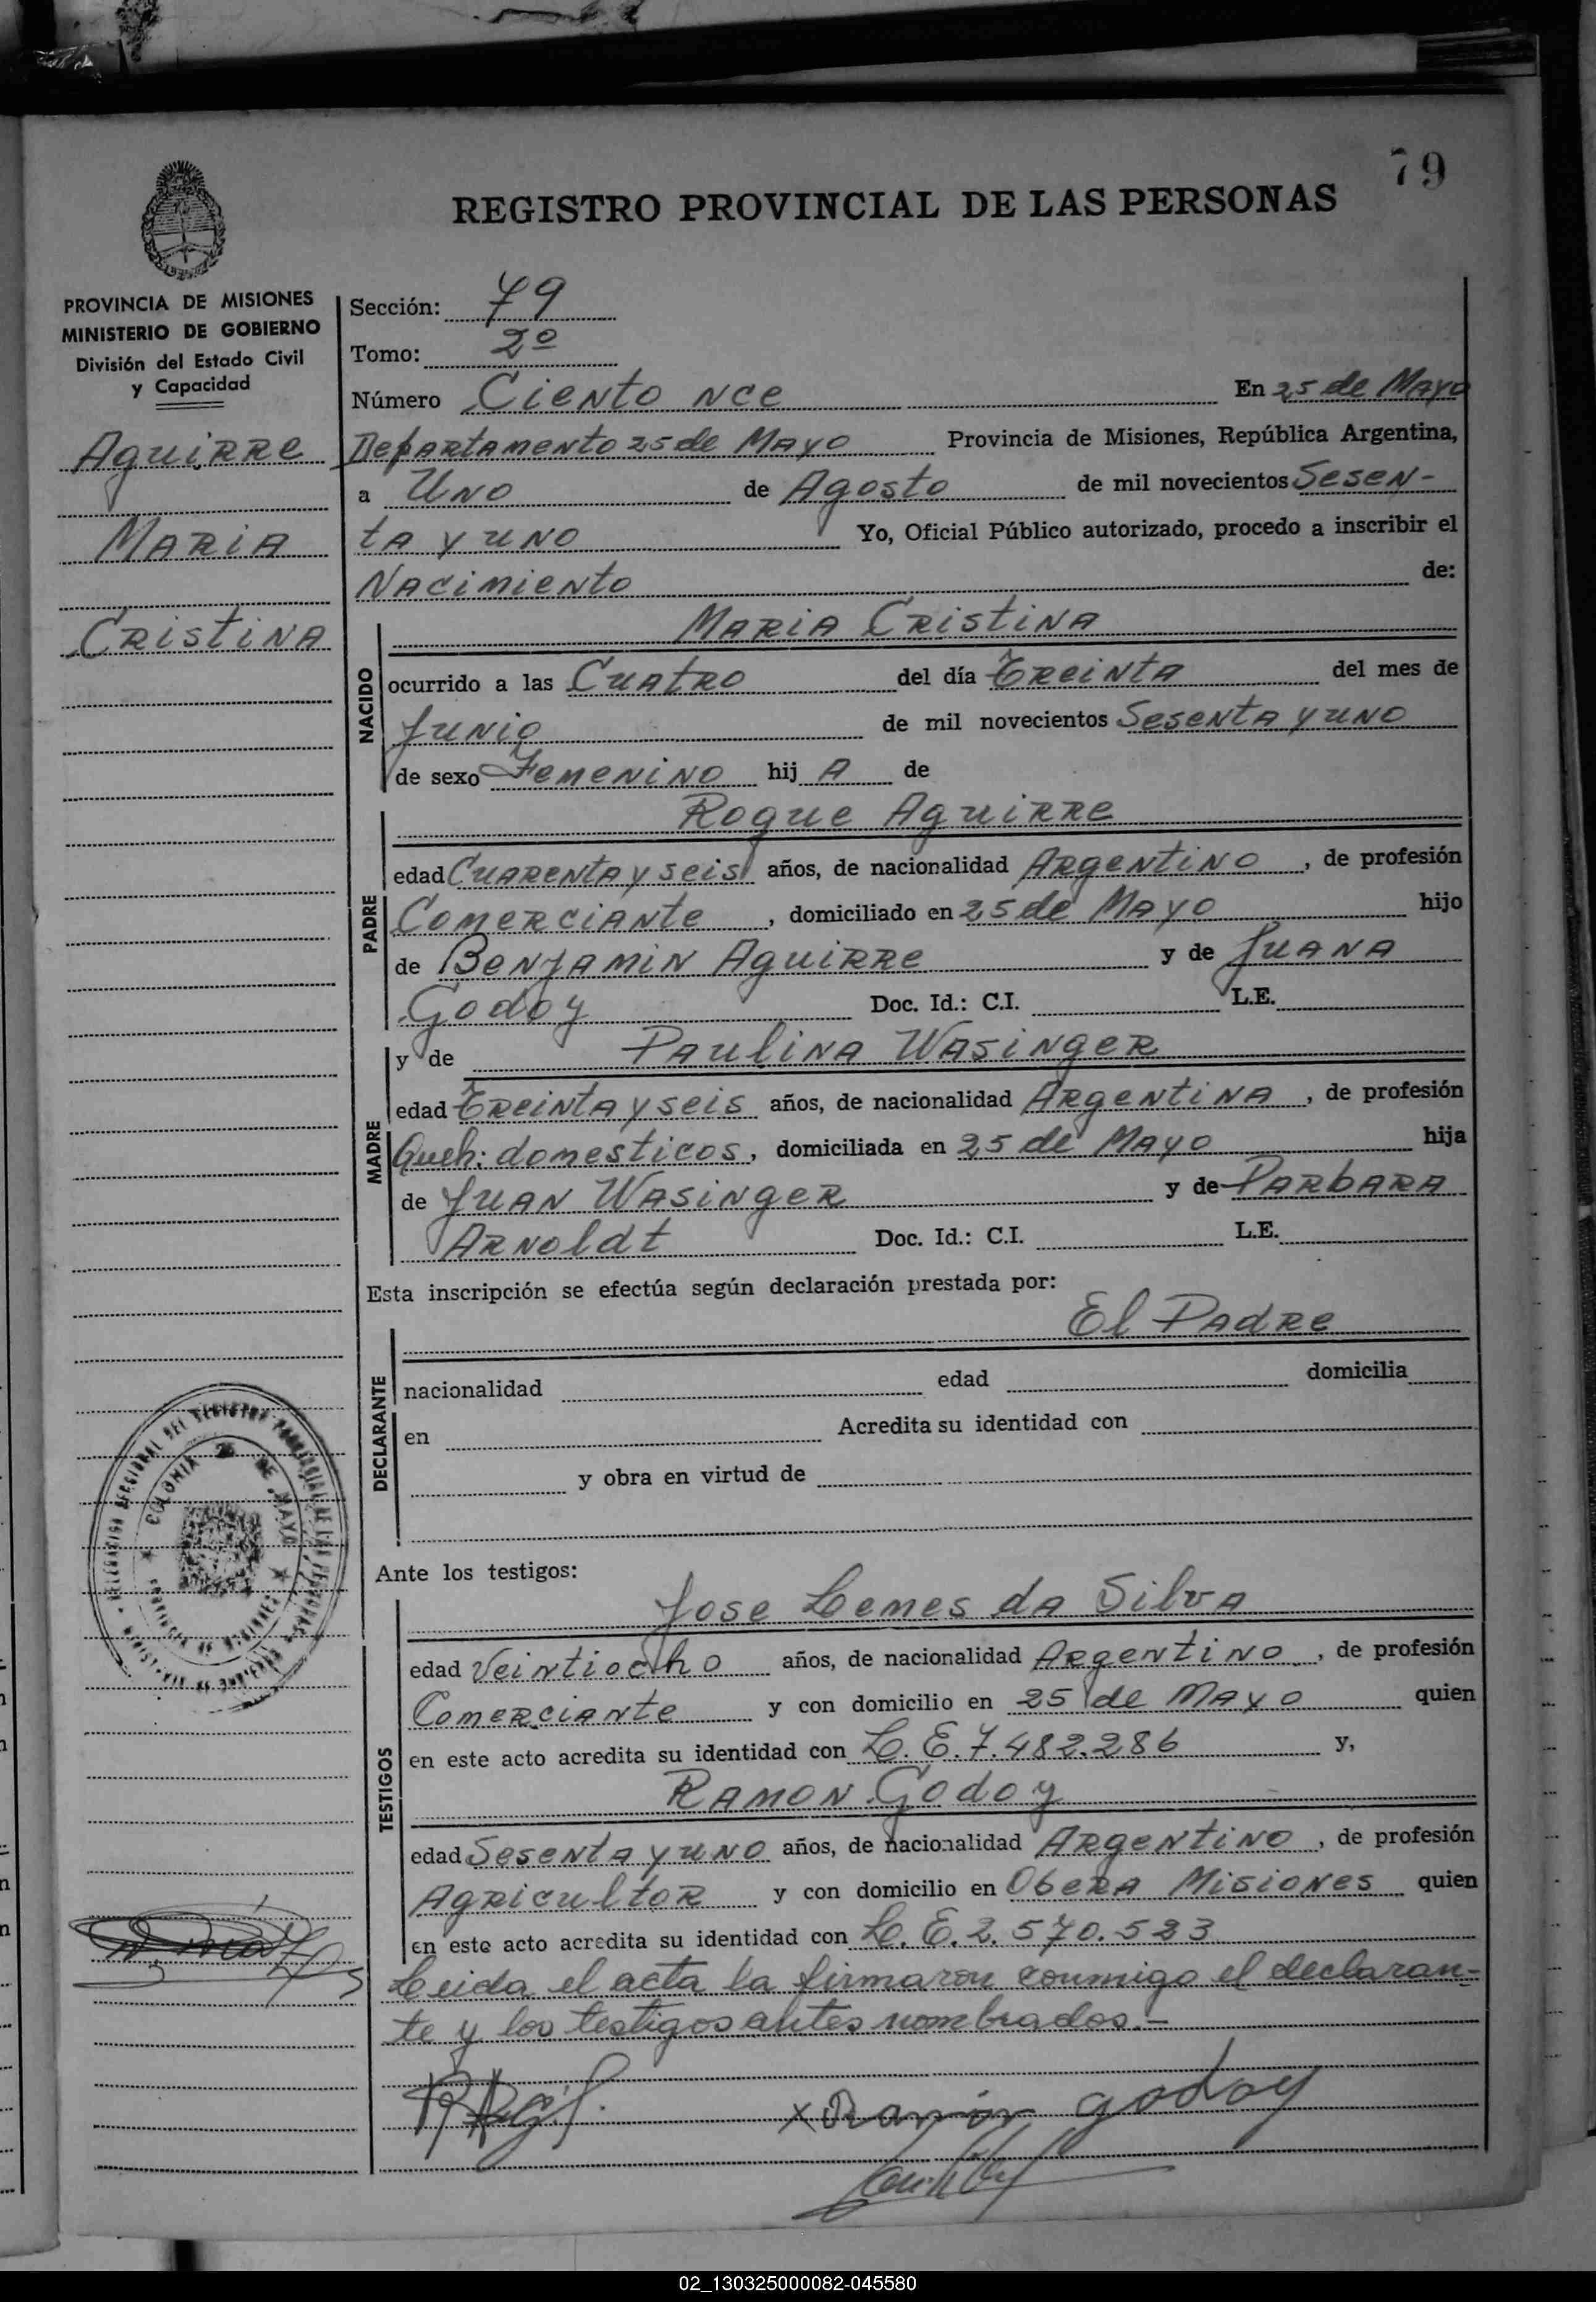 79
REGISTRO PROVINCIAL DE LAS PERSONAS
PROVINCIA DE MISIONES
MINISTERIO DE GOBIERNO
División del Estado Civil
y Capacidad
Aguirre
Maria
Cristina
Sección: 79
Tomo: 2º
Número Ciento nce En 25 de Mayo
Departamento 25 de Mayo Provincia de Misiones, República Argentina,
a Uno de Agosto de mil novecientos Sesen-
ta y uno Yo, Oficial Público autorizado, procedo a inscribir el
Nacimiento de:
Maria Cristina
NACIDO
ocurrido a las Cuatro del día Treinta del mes de
Junio de mil novecientos Sesenta y uno
de sexo Femenino hij a de
Roque Aguirre
PADRE
edad Cuarenta y seis años, de nacionalidad Argentino, de profesión
Comerciante, domiciliado en 25 de Mayo hijo
de Benjamin Aguirre y de Juana
Godoy Doc. Id.: C.I. L.E.
y de Paulina Wasinger
MADRE
edad Treinta y seis años, de nacionalidad Argentina, de profesión
Queh: domesticos, domiciliada en 25 de Mayo hija
de Juan Wasinger y de Parbara
Arnoldt Doc. Id.: C.I. L.E.
Esta inscripción se efectúa según declaración prestada por:
El Padre
DECLARANTE
nacionalidad edad domicilia
en Acredita su identidad con
y obra en virtud de
COLONIA 25 DE MAYO
Ante los testigos:
Jose Lemes da Silva
TESTIGOS
edad Veintiocho años, de nacionalidad Argentino, de profesión
Comerciante y con domicilio en 25 de Mayo quien
en este acto acredita su identidad con L.E. 7.482.286 y,
Ramon Godoy
edad Sesenta y uno años, de nacionalidad Argentino, de profesión
Agricultor y con domicilio en Obera Misiones quien
en este acto acredita su identidad con L.E. 2.570.523
Leida el acta la firmaron conmigo el declaran-
te y los testigos antes nombrados.-
x Ramon godoy
02_130325000082-045580